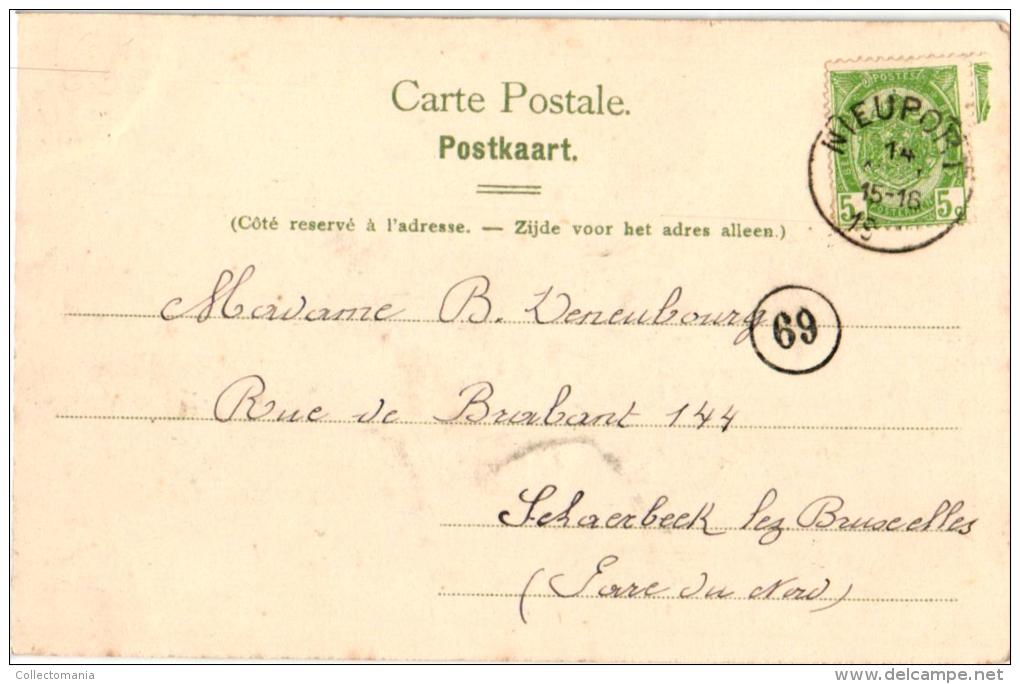 Carte Postale.
Postkaart.
(Côté reservé à l'adresse. — Zijde voor het adres alleen.)
POSTES
NIEUPORT
14
15-16
19
5c 5c
POSTERIJEN
Madame B. Veneubourg
69
Rue de Brabant 144
Schaerbeek lez Bruxelles
(Gare du Nord)
Collectomania
www.delcampe.net